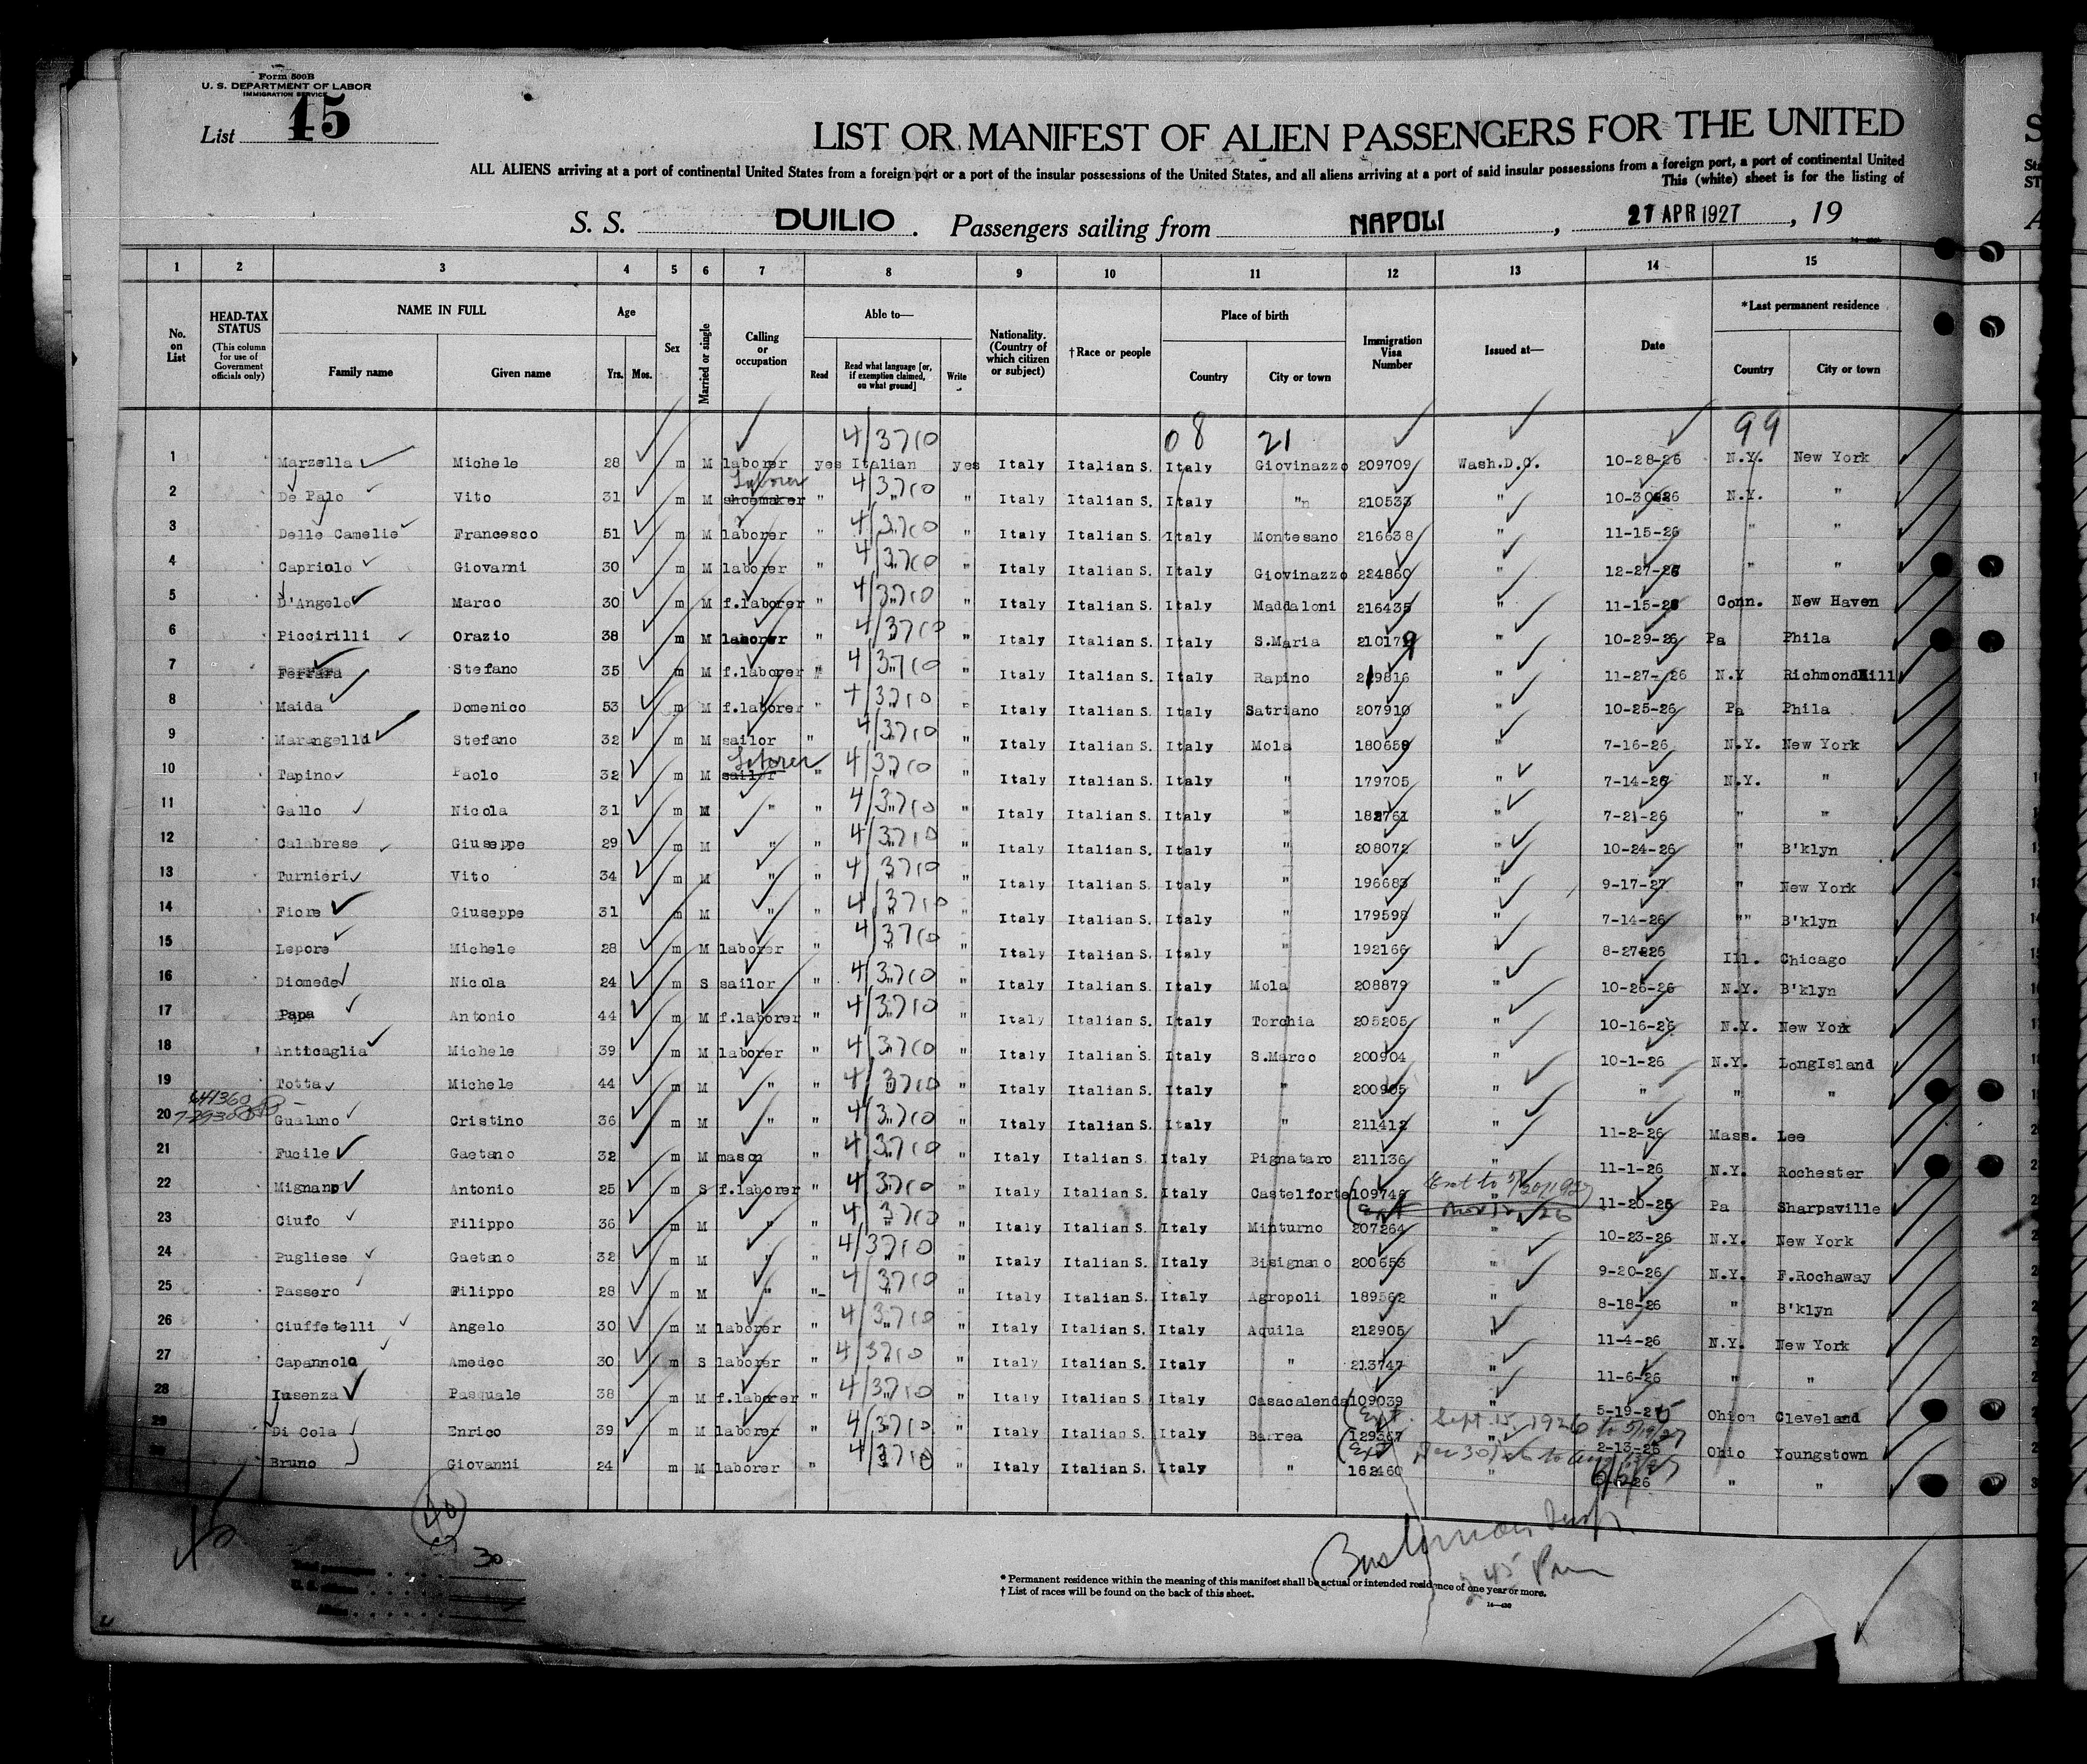 Form 500B
U. S. DEPARTMENT OF LABOR
IMMIGRATION SERVICE
List 15
LIST OR MANIFEST OF ALIEN PASSENGERS FOR THE UNITED
ALL ALIENS arriving at a port of continental United States from a foreign port or a port of the insular possessions of the United States, and all aliens arriving at a port of said insular possessions from a foreign port, a port of continental United
This (white) sheet is for the listing of
S. S. DUILIO. Passengers sailing from NAPOLI, 27 APR 1927, 19
1 2 3 4 5 6 7 8 9 10 11 12 13 14 15
No. on List
HEAD-TAX STATUS (This column for use of Government officials only)
NAME IN FULL Family name Given name
Age Yrs. Mos.
Sex
Married or single
Calling or occupation
Able to— Read Read what language [or, if exemption claimed, on what ground] Write
Nationality. (Country of which citizen or subject)
†Race or people
Place of birth Country City or town
Immigration Visa Number
Issued at—
Date
*Last permanent residence Country City or town
4/3710 08 21 99
1 Marzella Michele 28 m M laborer yes Italian yes Italy Italian S. Italy Giovinazzo 209709 Wash.D.C. 10-28-26 N.Y. New York
Laborer 4/3710
2 De Palo Vito 31 m M shoemaker " " " Italy Italian S. Italy "n 210533 " 10-30-26 N.Y. "
4/3710
3 Delle Camelie Francesco 51 m M laborer " " " Italy Italian S. Italy Montesano 216638 " 11-15-26 " "
4/3710
4 Capriolo Giovanni 30 m M laborer " " " Italy Italian S. Italy Giovinazzo 224860 " 12-27-26 " "
4/3710
5 D'Angelo Marco 30 m M f.laborer " " " Italy Italian S. Italy Maddaloni 216435 " 11-15-26 Conn. New Haven
4/3710
6 Piccirilli Orazio 38 m M laborer " " " Italy Italian S. Italy S.Maria 210179 " 10-29-26 Pa Phila
4/3710
7 Ferrara Stefano 35 m M f.laborer " " " Italy Italian S. Italy Rapino 219816 " 11-27-26 N.Y RichmondHill
4/3710
8 Maida Domenico 53 m M f.laborer " " Italy Italian S. Italy Satriano 207910 " 10-25-26 Pa Phila
4/3710
9 Marangelli Stefano 32 m M sailor " " Italy Italian S. Italy Mola 180658 " 7-16-26 N.Y. New York
Laborer 4/3710
10 Tapino Paolo 32 m M sailor " " " Italy Italian S. Italy " 179705 " 7-14-26 N.Y. "
4/3710
11 Gallo Nicola 31 m M " " " " Italy Italian S. Italy " 182761 " 7-21-26 " "
4/3710
12 Calabrese Giuseppe 29 m M " " " " Italy Italian S. Italy " 208072 " 10-24-26 " B'klyn
4/3710
13 Turnieri Vito 34 m M " " " " Italy Italian S. Italy " 196683 " 9-17-27 " New York
4/3710
14 Fiore Giuseppe 31 m M " " " " Italy Italian S. Italy " 179598 " 7-14-26 "" B'klyn
4/3710
15 Lepore Michele 28 m M laborer " " " Italy Italian S. Italy " 192166 " 8-27-26 Ill. Chicago
4/3710
16 Diomede Nicola 24 m S sailor " " " Italy Italian S. Italy Mola 208879 " 10-26-26 N.Y. B'klyn
4/3710
17 Papa Antonio 44 m M f.laborer " " " Italy Italian S. Italy Torchia 205205 " 10-16-26 N.Y. New York
4/3710
18 Anticaglia Michele 39 m M laborer " " " Italy Italian S. Italy S.Marco 200904 " 10-1-26 N.Y. LongIsland
4/3710
19 Totta Michele 44 m M " " " " Italy Italian S. Italy " 200905 " " " "
4/3710
20 Gualano Cristino 36 m M " " " " Italy Italian S. Italy " 211412 " 11-2-26 Mass. Lee
4/3710
21 Fucile Gaetano 32 m M mason " " " Italy Italian S. Italy Pignataro 211136 " 11-1-26 N.Y. Rochester
4/3710
22 Mignano Antonio 25 m S f.laborer " " " Italy Italian S. Italy Castelforte 109746 " 11-20-25 Pa Sharpsville
4/3710
23 Ciufo Filippo 36 m M " " " " Italy Italian S. Italy Minturno 207264 " 10-23-26 N.Y. New York
4/3710
24 Pugliese Gaetano 32 m M " " " " Italy Italian S. Italy Bisignano 200653 " 9-20-26 N.Y. F.Rochaway
4/3710
25 Passero Filippo 28 m M " " " " Italy Italian S. Italy Agropoli 189562 " 8-18-26 " B'klyn
4/3710
26 Ciuffetelli Angelo 30 m M laborer " " " Italy Italian S. Italy Aquila 212905 " 11-4-26 N.Y. New York
4/3710
27 Capannolo Amedeo 30 m S laborer " " " Italy Italian S. Italy " 213747 " 11-6-26 " "
4/3710
28 Iusenza Pasquale 38 m M f.laborer " " " Italy Italian S. Italy Casacalenda 109039 " 5-19-25 Ohio Cleveland
(Ext. Sept. 15, 1926 to 5/19/27
4/3710
29 Di Cola Enrico 39 m M laborer " " " Italy Italian S. Italy Barrea 129367 " 2-13-26 Ohio Youngstown
(Ext Dec 30/26 to
4/3710
30 Bruno Giovanni 24 m M laborer " " Italy Italian S. Italy " 162460 " " "
40
30
Total passengers
U. S. citizens
Aliens
2 45 Pm
* Permanent residence within the meaning of this manifest shall be actual or intended residence of one year or more.
† List of races will be found on the back of this sheet.